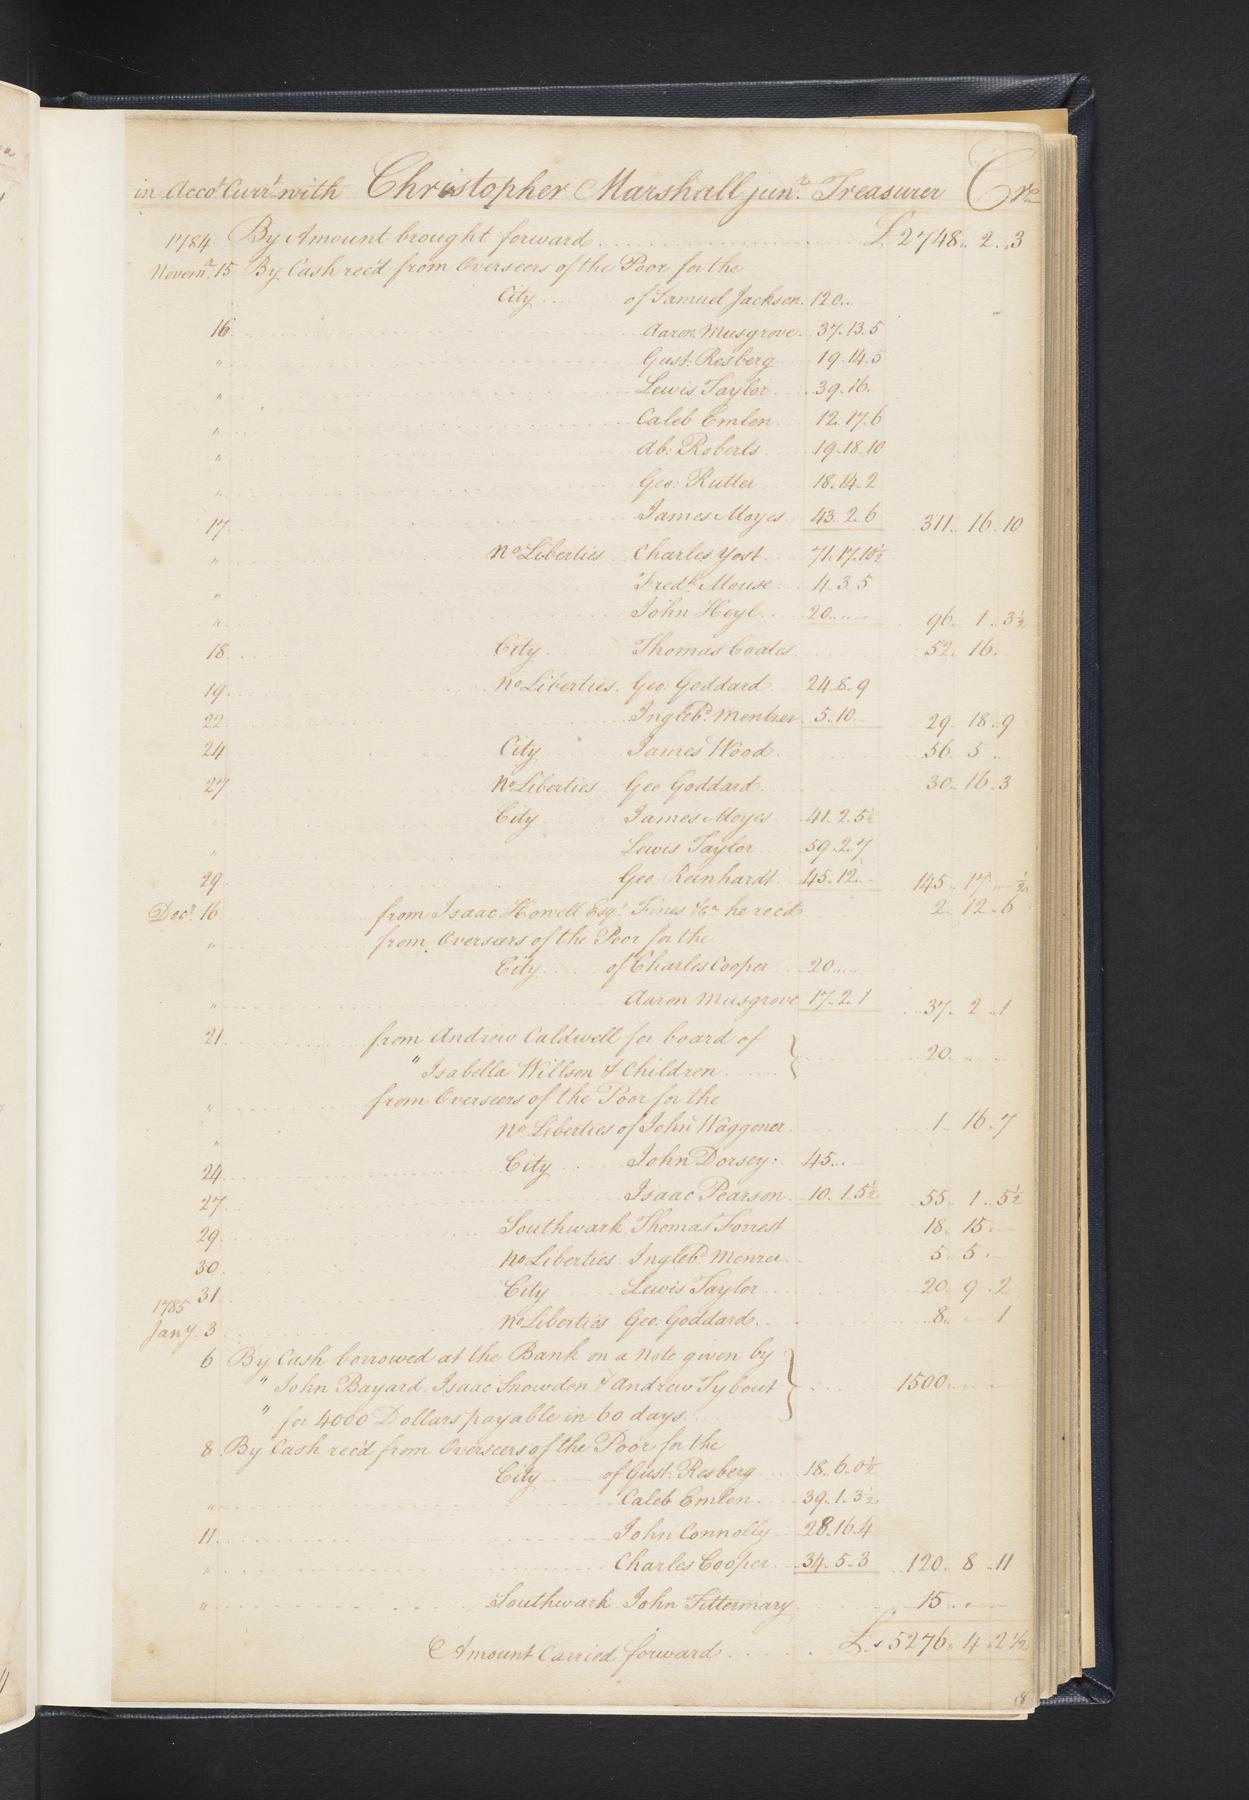 in Acco.t Curr.t with Christopher Marshall jun.r Treasurer Cr.
1784 By Amount brought forward £ 2748.. 2..3
Novem.r 15 By Cash rec'd from Overseers of the Poor for the
City of Samuel Jackson. 120..
16 Aaron Musgrove. 37.13.5
" Gust: Resberg 19.14.5
" Lewis Taylor 39.16.
" Caleb Emlen 12.17.6
" Ab: Roberts 19.18.10
" Geo: Rutter 18.14.2
17 James Moyes 43.2.6 311.. 16.10
" No Liberties Charles Yost. 71.17.10½
" Fred.k Mouse 4.3.5
" John Heyl 20.... 96.. 1..3½
18 City Thomas Coates 52. 16.
19 No Liberties. Geo: Goddard 24.8.9
22 Ingleb.d Mentzer 5.10 29. 18.9
24 City James Wood 56. 5 ..
27 No Liberties Geo Goddard 30.. 16.3
" City James Moyes 41.2.5½
" Lewis Taylor 59.2.7
29 Geo. Reinhardt 45.12.- 145.. 17..-½
Dec.r 16 from Isaac Howell Esq.r Fines &c.a he rec'd 2. 12.6
" from Overseers of the Poor for the
City of Charles Cooper 20....
" Aaron Musgrove 17.2.1 37. 2..1
21 from Andrew Caldwell for board of
" Isabella Willson & Children 20.. .. ..
" from Overseers of the Poor for the
" No Liberties of John Waggoner 1.. 16.7
24 City John Dorsey. 45..
27 Isaac Pearson 10.1.5½ 55.. 1..5½
29 Southwark Thomas Forrest 18. 15.-
30 No Liberties Ingleb.d Menzer 5.. 5.-
31 City Lewis Taylor 20. 9.2
1785
Jany. 3 No Liberties Geo. Goddard 8.. - 1
6 By Cash borrowed at the Bank on a Note given by
" John Bayard. Isaac Snowden & Andrew Tybout 1500....
" for 4000 Dollars payable in 60 days.
8 By Cash rec'd from Overseers of the Poor for the
City of Gust: Resberg 18.6.0½
" Caleb Emlen 39.1.3½
11 John Connolly 28.16.4
" Charles Cooper 34.5.3 120.. 8..11
" Southwark John Fittermary 15.. .. -
Amount Carried forward £ 5276.. 4..2½
18